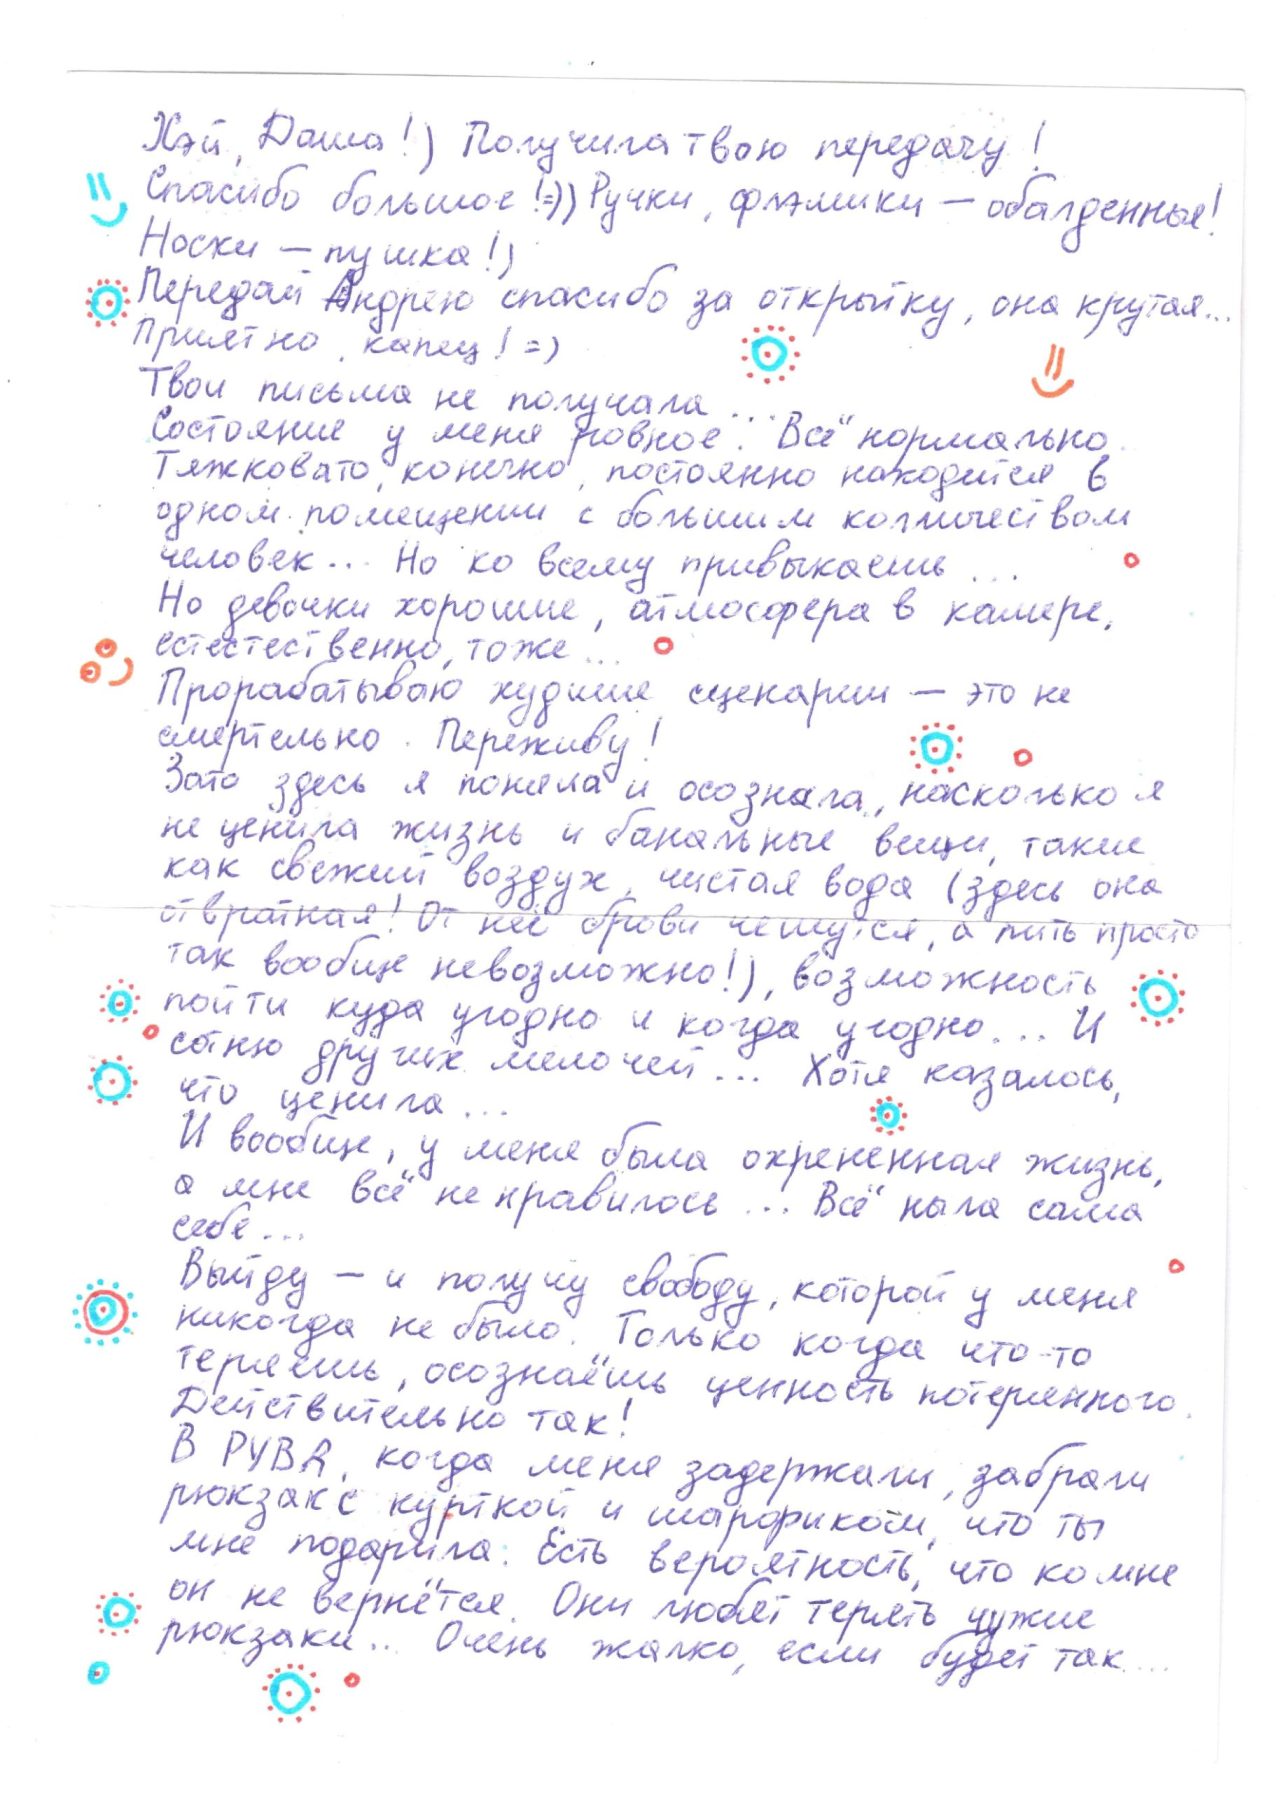 Хэй, Даша!) Получила твою передачу!
Спасибо большое!=)) Ручки, фламики — обалденные!
Носки — пушка!)
Передай Андрею спасибо за открытку, она крутая...
Приятно, капец! =)
Твои письма не получала...
Состояние у меня ровное. Всё нормально.
Тяжковато, конечно, постоянно находится в
одном помещении с большим количеством
человек... Но ко всему привыкаешь...
Но девочки хорошие, атмосфера в камере,
естестественно, тоже...
Прорабатываю худшие сценарии — это не
смертельно. Переживу!
Зато здесь я поняла и осознала, насколько я
не ценила жизнь и банальные вещи, такие
как свежий воздух, чистая вода (здесь она
отвратная! От неё брови чешутся, а пить просто
так вообще невозможно!), возможность
пойти куда угодно и когда угодно... И
сотню других мелочей... Хотя казалось,
что ценила...
И вообще, у меня была охрененная жизнь,
а мне всё не нравилось... Всё ныла сама
себе...
Выйду — и получу свободу, которой у меня
никогда не было. Только когда что-то
теряешь, осознаёшь ценность потерянного.
Действительно так!
В РУВД, когда меня задержали, забрали
рюкзак с курткой и шарфиком, что ты
мне подарила. Есть вероятность, что ко мне
он не вернётся. Они любят терять чужие
рюкзаки... Очень жалко, если будет так...